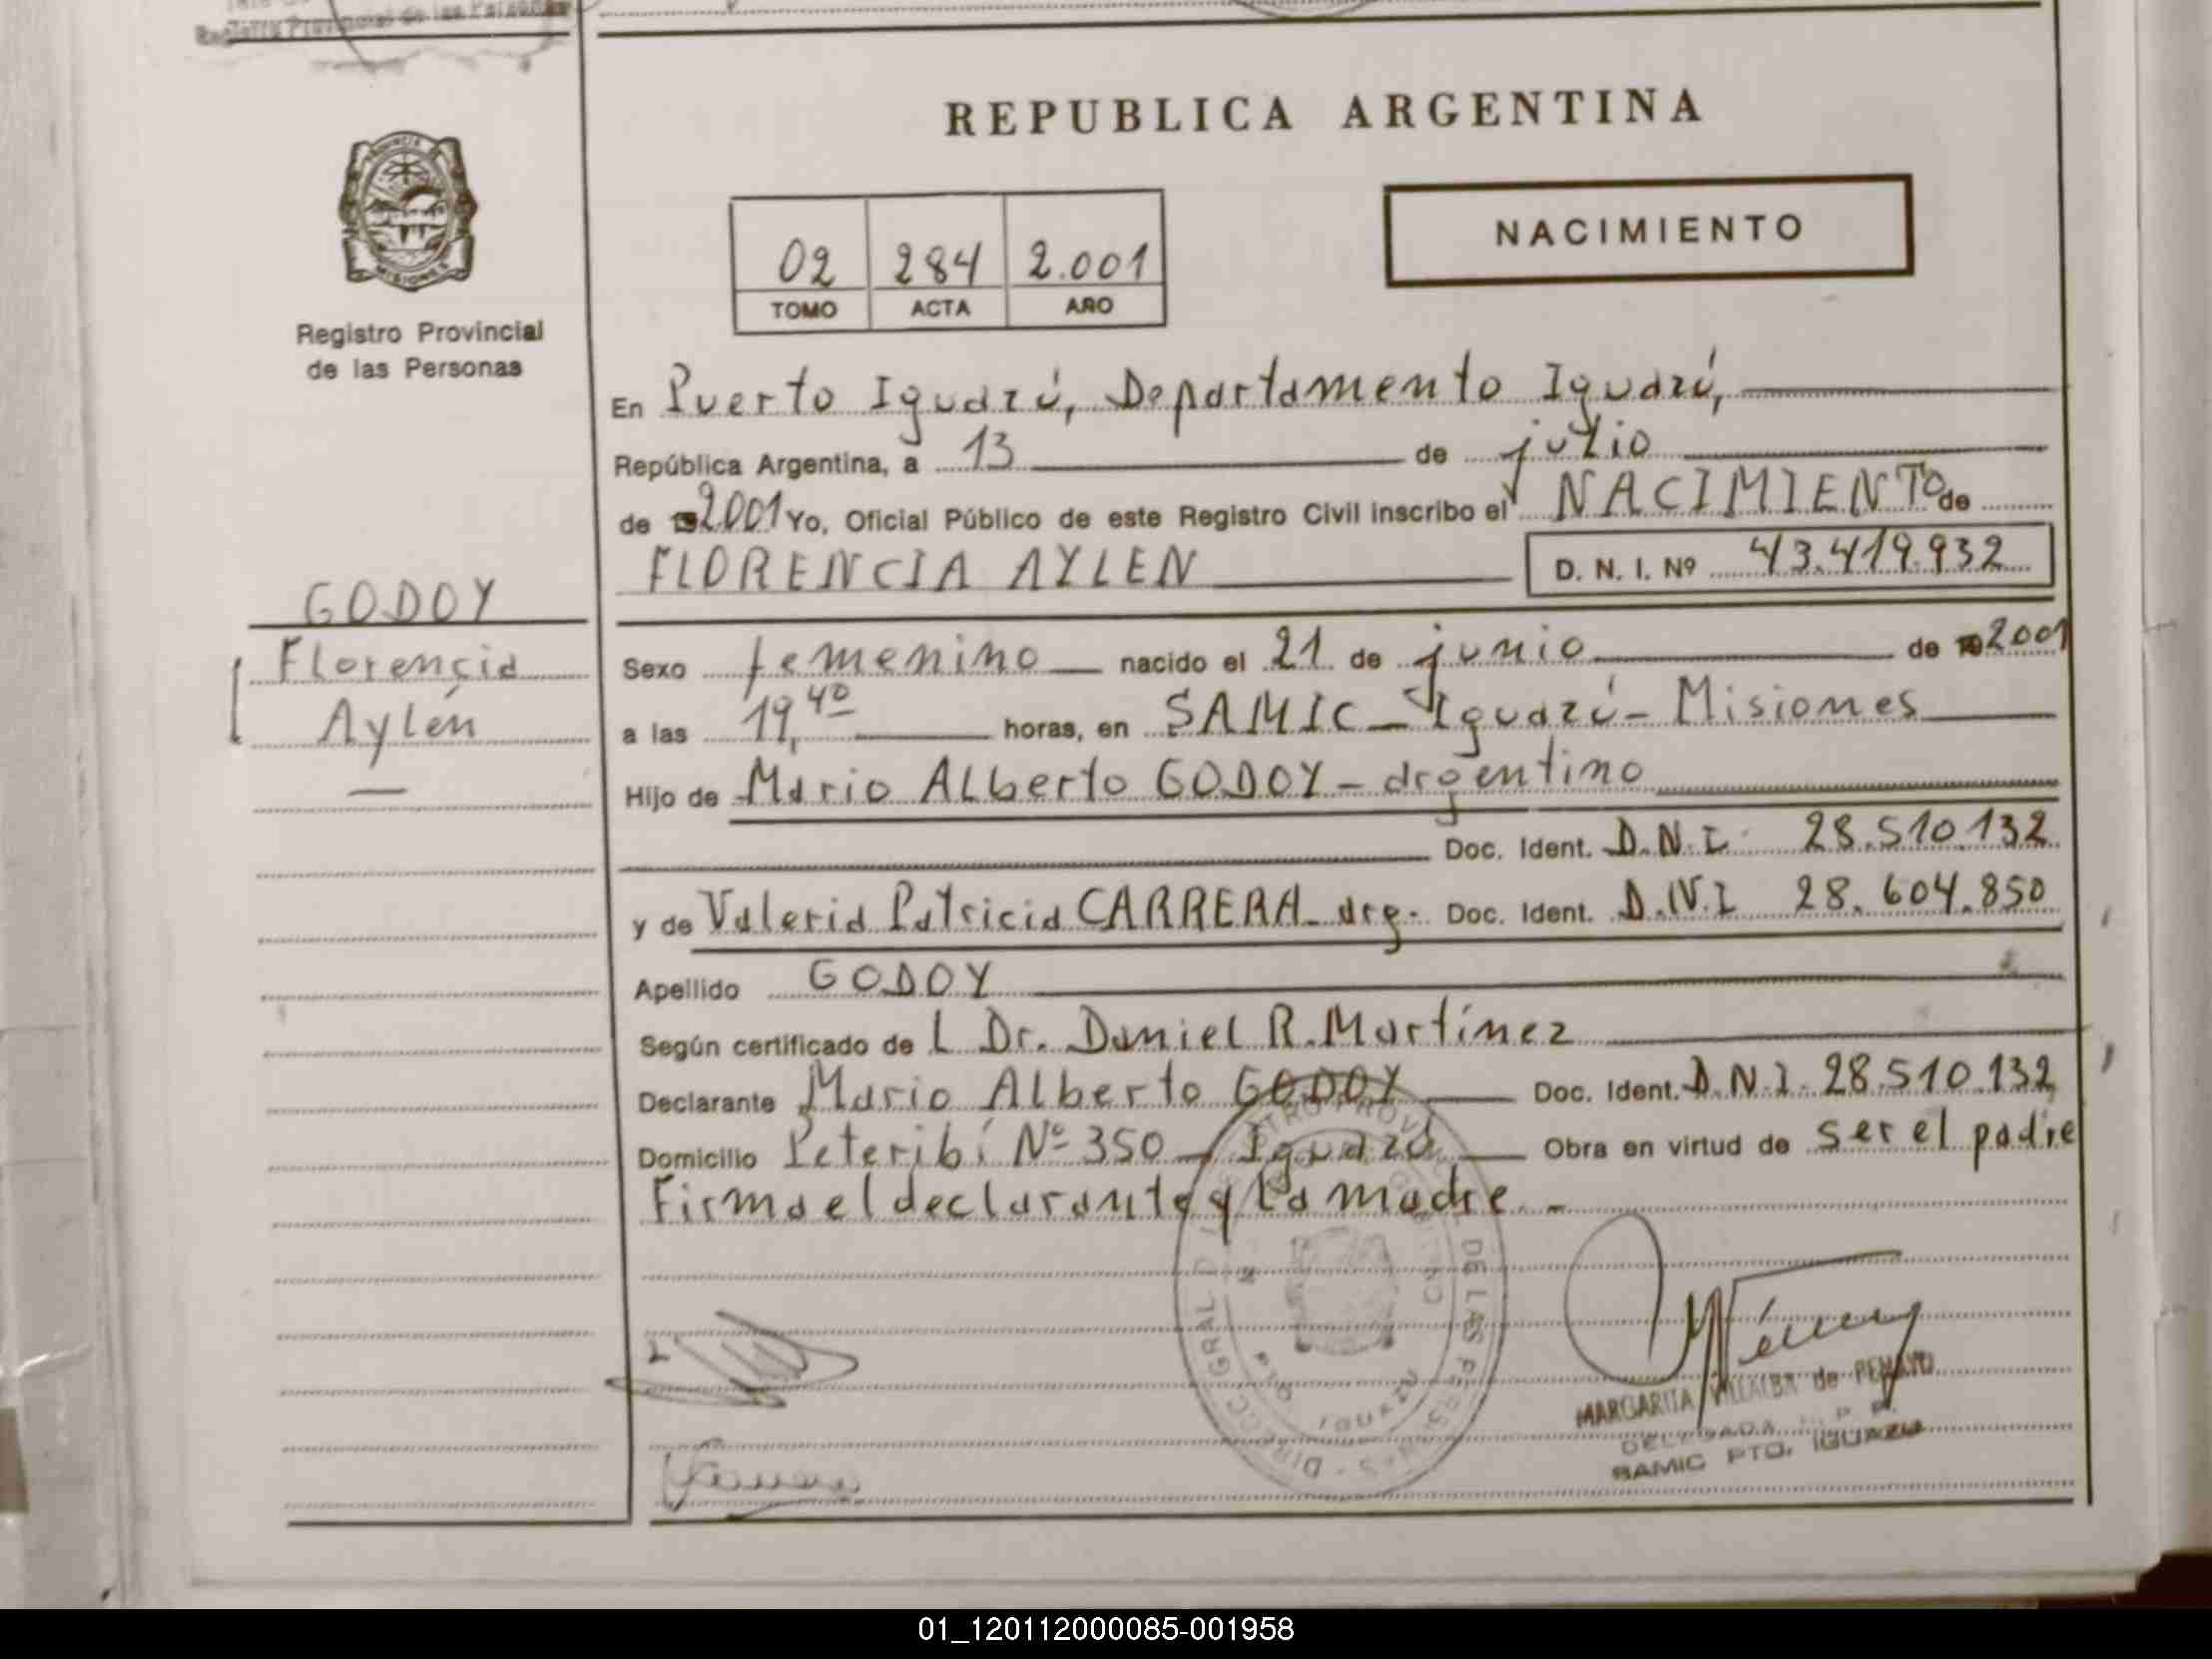 Registro Provincial de las Personas
REPUBLICA ARGENTINA
PROVINCIA
MISIONES
Registro Provincial
de las Personas
02 284 2.001
TOMO ACTA AÑO
NACIMIENTO
En Puerto Iguazú, Departamento Iguazú,
República Argentina, a 13 de julio
de 2001 Yo, Oficial Público de este Registro Civil inscribo el NACIMIENTO de
FLORENCIA AYLEN D. N. I. Nº 43.419.932
GODOY
Florencia
Aylén
Sexo femenino nacido el 21 de junio de 2001
a las 19,40 horas, en SAMIC - Iguazú - Misiones
Hijo de Mario Alberto GODOY - argentino
Doc. Ident. D.N.I. 28.510.132
y de Valeria Patricia CARRERA - arg. Doc. Ident. D.N.I 28.604.850
Apellido GODOY
Según certificado de L Dr. Daniel R. Martínez
Declarante Mario Alberto GODOY Doc. Ident. D.N.I. 28.510.132
Domicilio Peteribí Nº 350 - Iguazú Obra en virtud de ser el padre
Firma el declarante y la madre. -
MARGARITA VILLALBA de PENAYO
DELEGADA R. P. P.
SAMIC PTO. IGUAZU
01_120112000085-001958